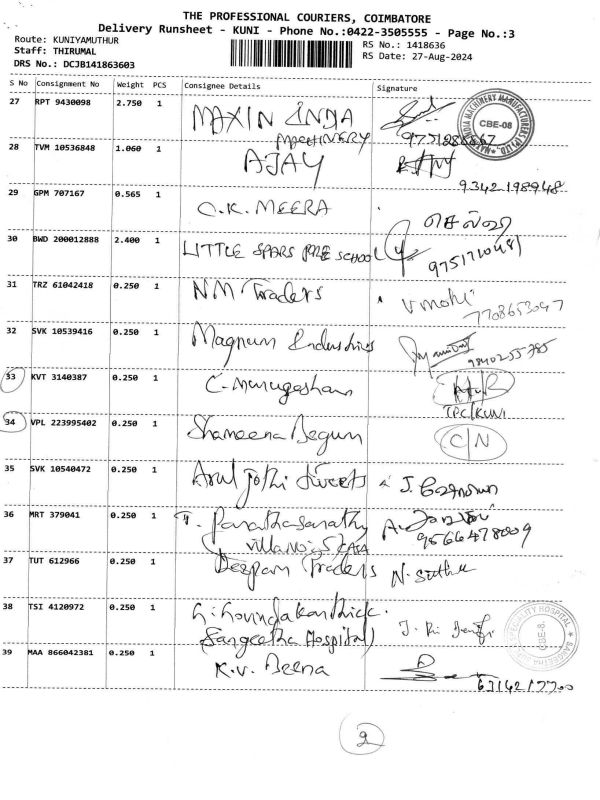 THE PROFESSIONAL COURIERS, COIMBATORE
Delivery Runsheet - KUNI - Phone No.:0422-3505555 - Page No.:3
Route: KUNIYAMUTHUR
Staff: THIRUMAL
DRS No.: DCJB141863603
RS No.: 1418636
RS Date: 27-Aug-2024
S No Consignment No Weight PCS Consignee Details Signature
27 RPT 9430098 2.750 1 MAXIN INDIA
MACHINERY
CBE-08
28 TVM 10536848 1.060 1 AJAY
9342198948
29 GPM 707167 0.565 1 C.K. MEERA
30 BWD 200012888 2.400 1 LITTLE SPARS PRE SCHOOL
31 TRZ 61042418 0.250 1 NM Traders
7708653047
32 SVK 10539416 0.250 1 Magnum Industries
9840255785
33 KVT 3140387 0.250 1 C. Murugeshan
TPC/KUNI
34 VPL 223995402 0.250 1 Shameena Begum C/N
35 SVK 10540472 0.250 1 Arul Jothi Sweets
36 MRT 379041 0.250 1 T. Parathasarathy
9566478009
37 TUT 612966 0.250 1 Deepam Traders
38 TSI 4120972 0.250 1 G. Govindakarthick.
Sangeetha Hospital
CBE-8.
39 MAA 866042381 0.250 1 K.V. Beena
2